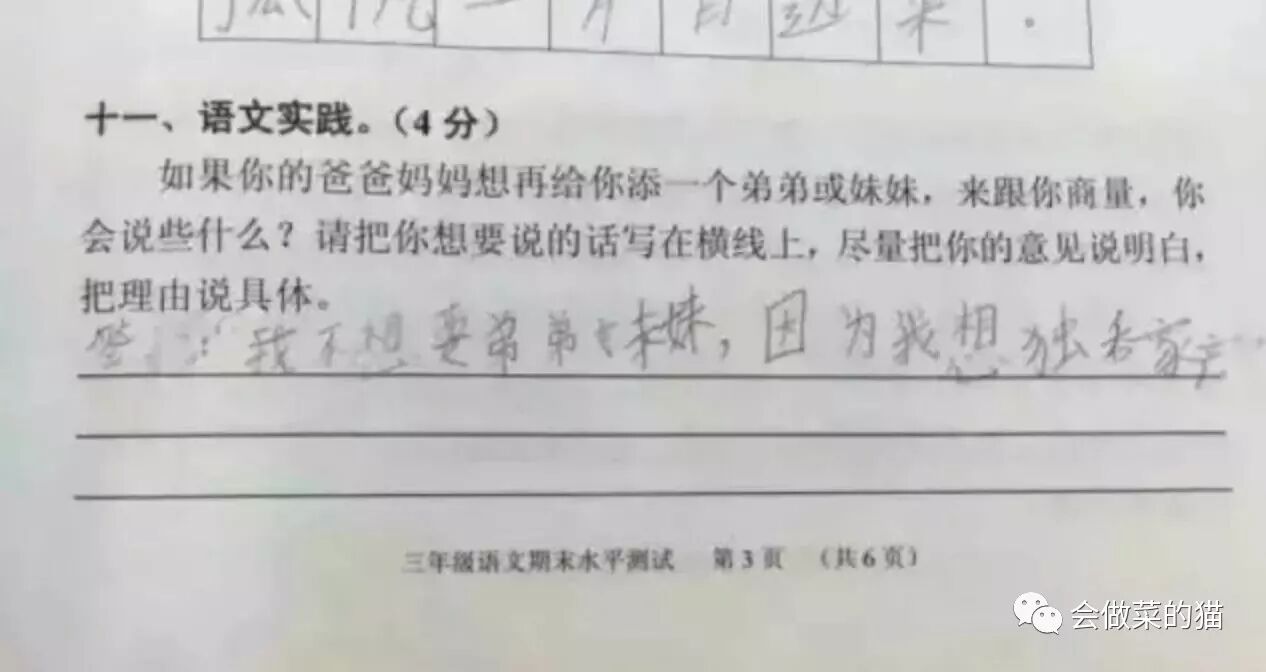 一 月 日 过 来 。
十一、语文实践。（4 分）
如果你的爸爸妈妈想再给你添一个弟弟或妹妹，来跟你商量，你
会说些什么？请把你想要说的话写在横线上，尽量把你的意见说明白，
把理由说具体。
答：我不想要弟弟妹妹，因为我想独吞家产…
三年级语文期末水平测试 第 3 页 （共 6 页）
会做菜的猫